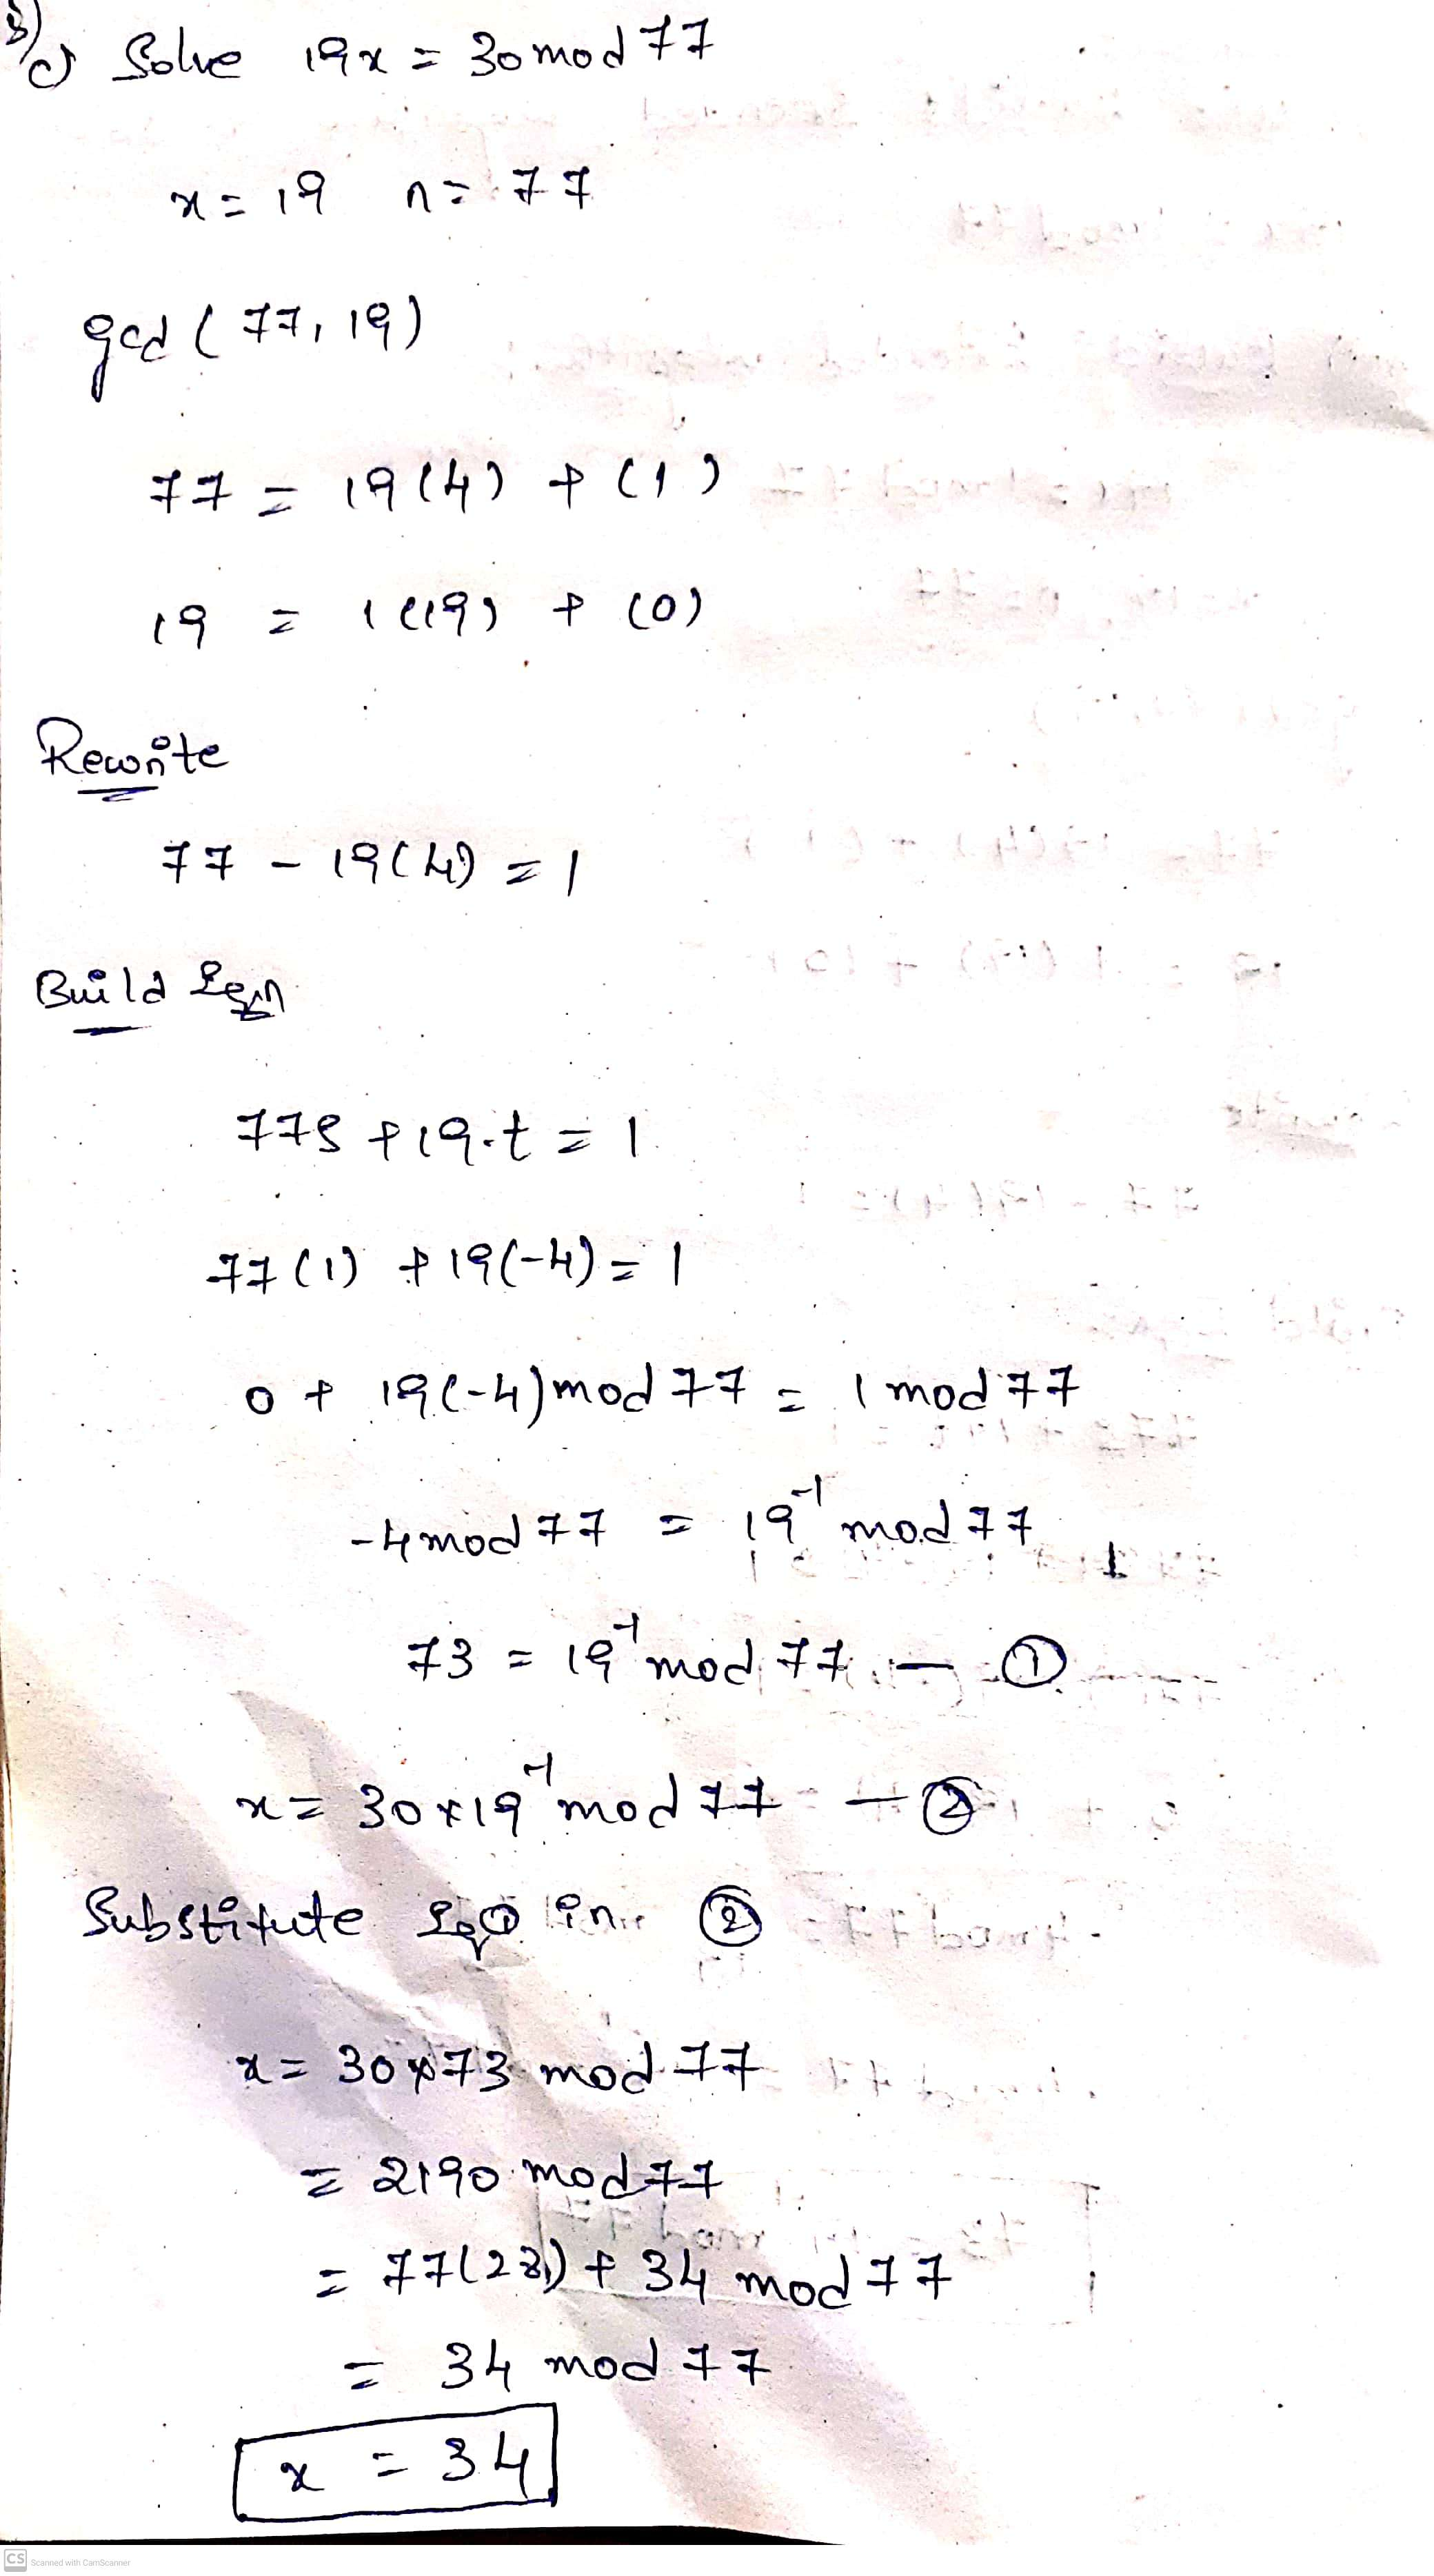 3)
c) Solve 19x = 30 mod 77
x = 19 n = 77
gcd (77, 19)
77 = 19(4) + (1)
19 = 1(19) + (0)
Rewrite
77 - 19(4) = 1
Build Eqn
77s + 19.t = 1
77(1) + 19(-4) = 1
0 + 19(-4) mod 77 = 1 mod 77
-4 mod 77 = 19⁻¹ mod 77
73 = 19⁻¹ mod 77 — ①
x = 30 * 19⁻¹ mod 77 — ②
Substitute Eq ① in ②
x = 30 * 73 mod 77
= 2190 mod 77
= 77(28) + 34 mod 77
= 34 mod 77
x = 34
CS Scanned with CamScanner